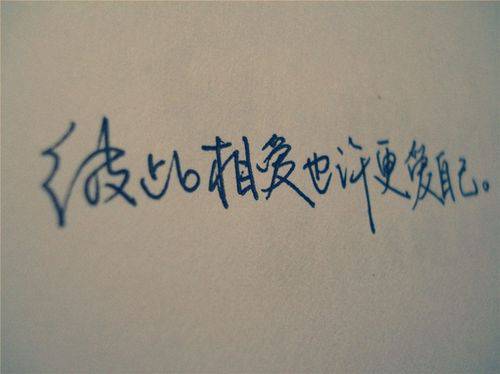 彼此相爱也许更爱自己。